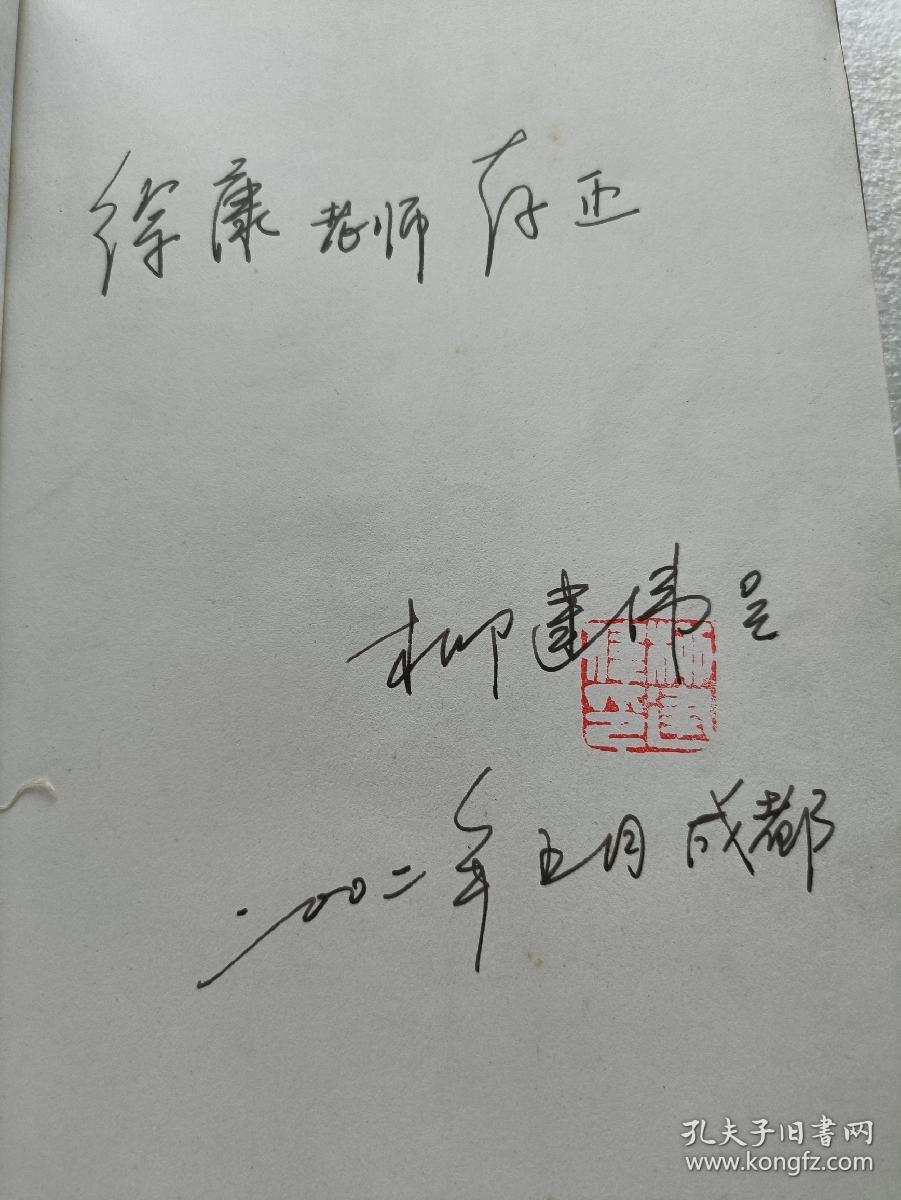 徐康老师存正
柳建伟呈
柳建伟印
二00二年五月成都
孔夫子旧书网
www.kongfz.com